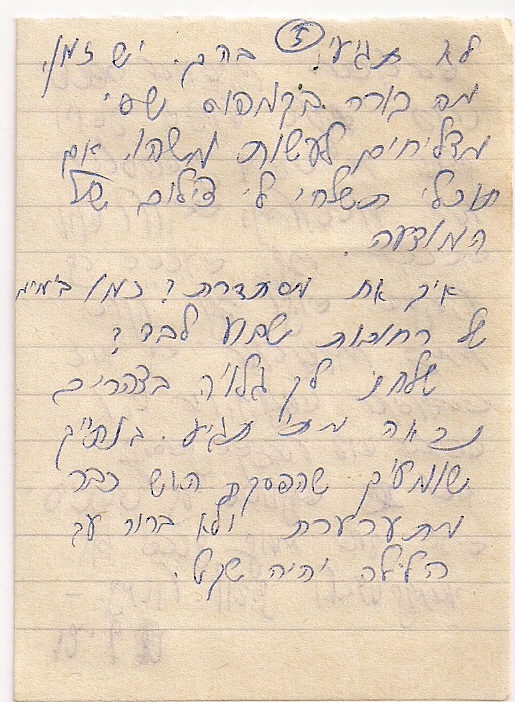 5
לא תגיעי בהם. יש זמן.
מה קורה בקמפוס
מצליחים לעשות משהו. אם
תוכלי תשלחי לי צילום של
המודעה.
איך את מסתדרת? כמו בימים
של רחובות שבוע לבד?
שלחנו לך גלויה בצהריים
נראה מתי תגיע.
שומעים שהפסקת האש כבר
מתערערת ולא ברור עד
הלילה יהיה שקט.